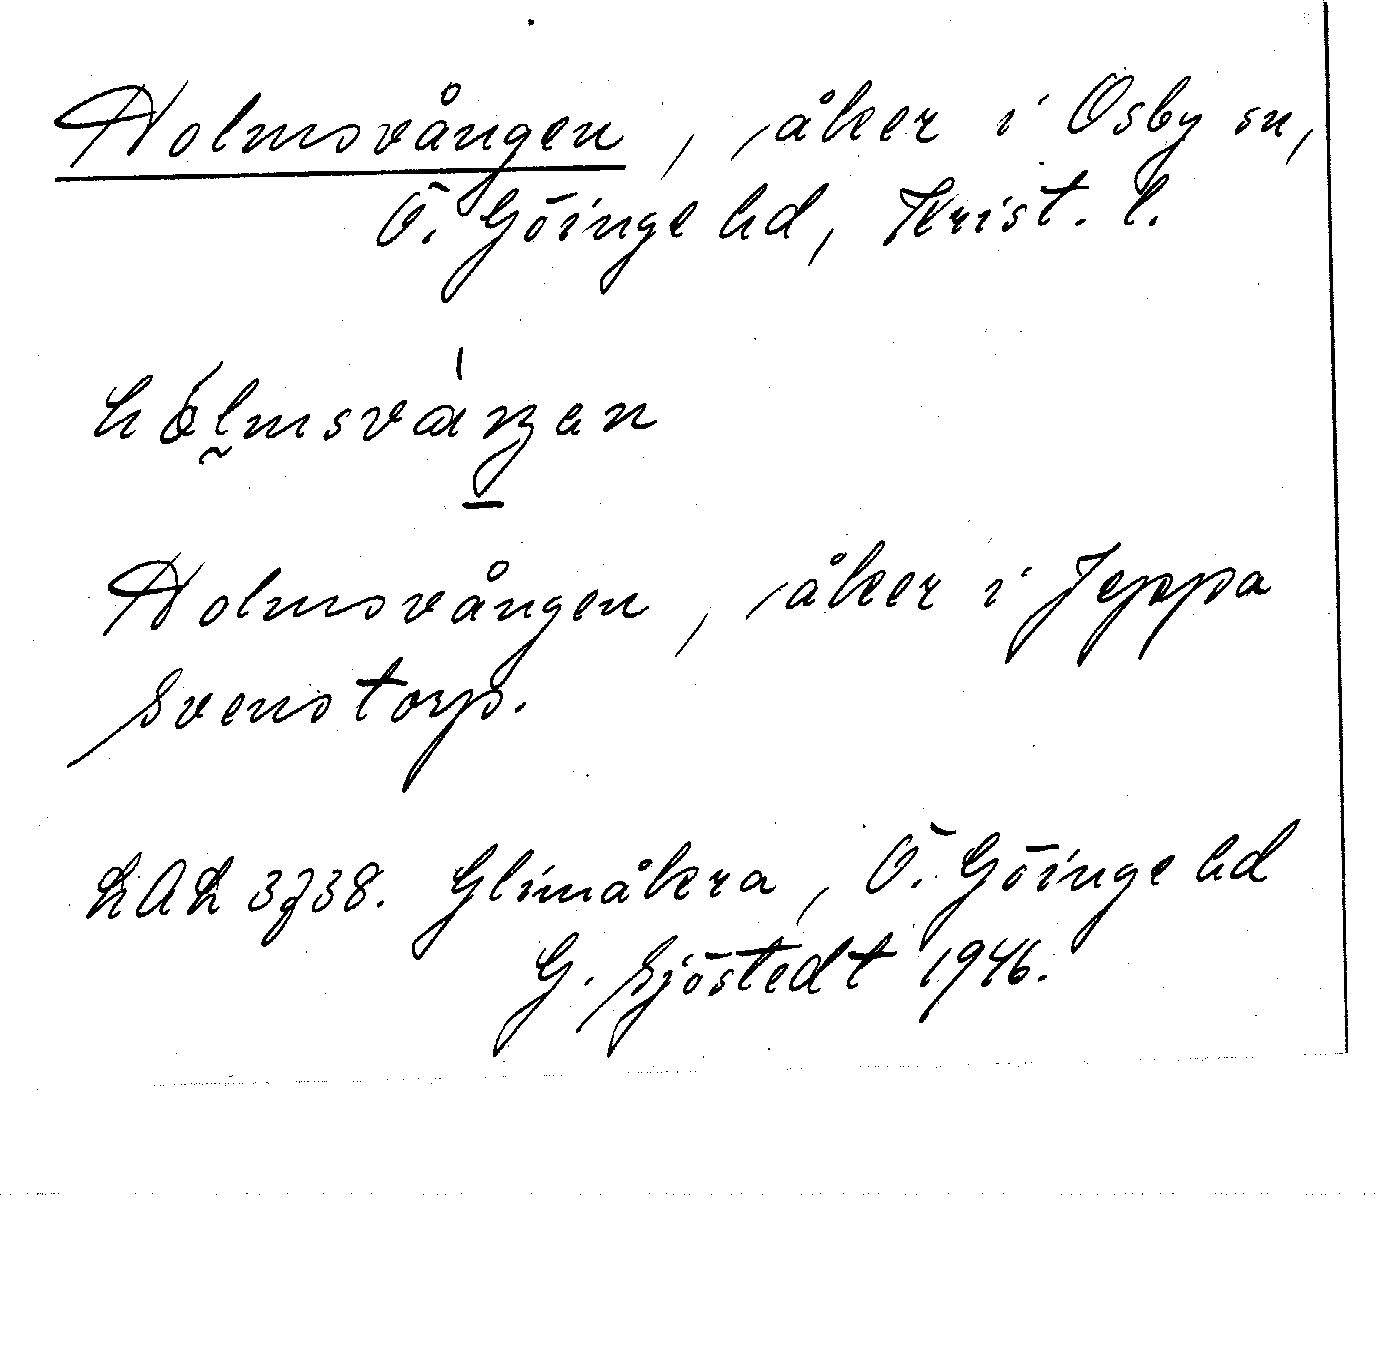 Holmsvången, åker i Osby sn,
Ö. Göinge hd, Krist. l.
Holmsvången, åker i Jeppa
Svenstorp.
LAL 3738. Glimåkra, Ö. Göinge hd
G. Sjöstedt 1946.